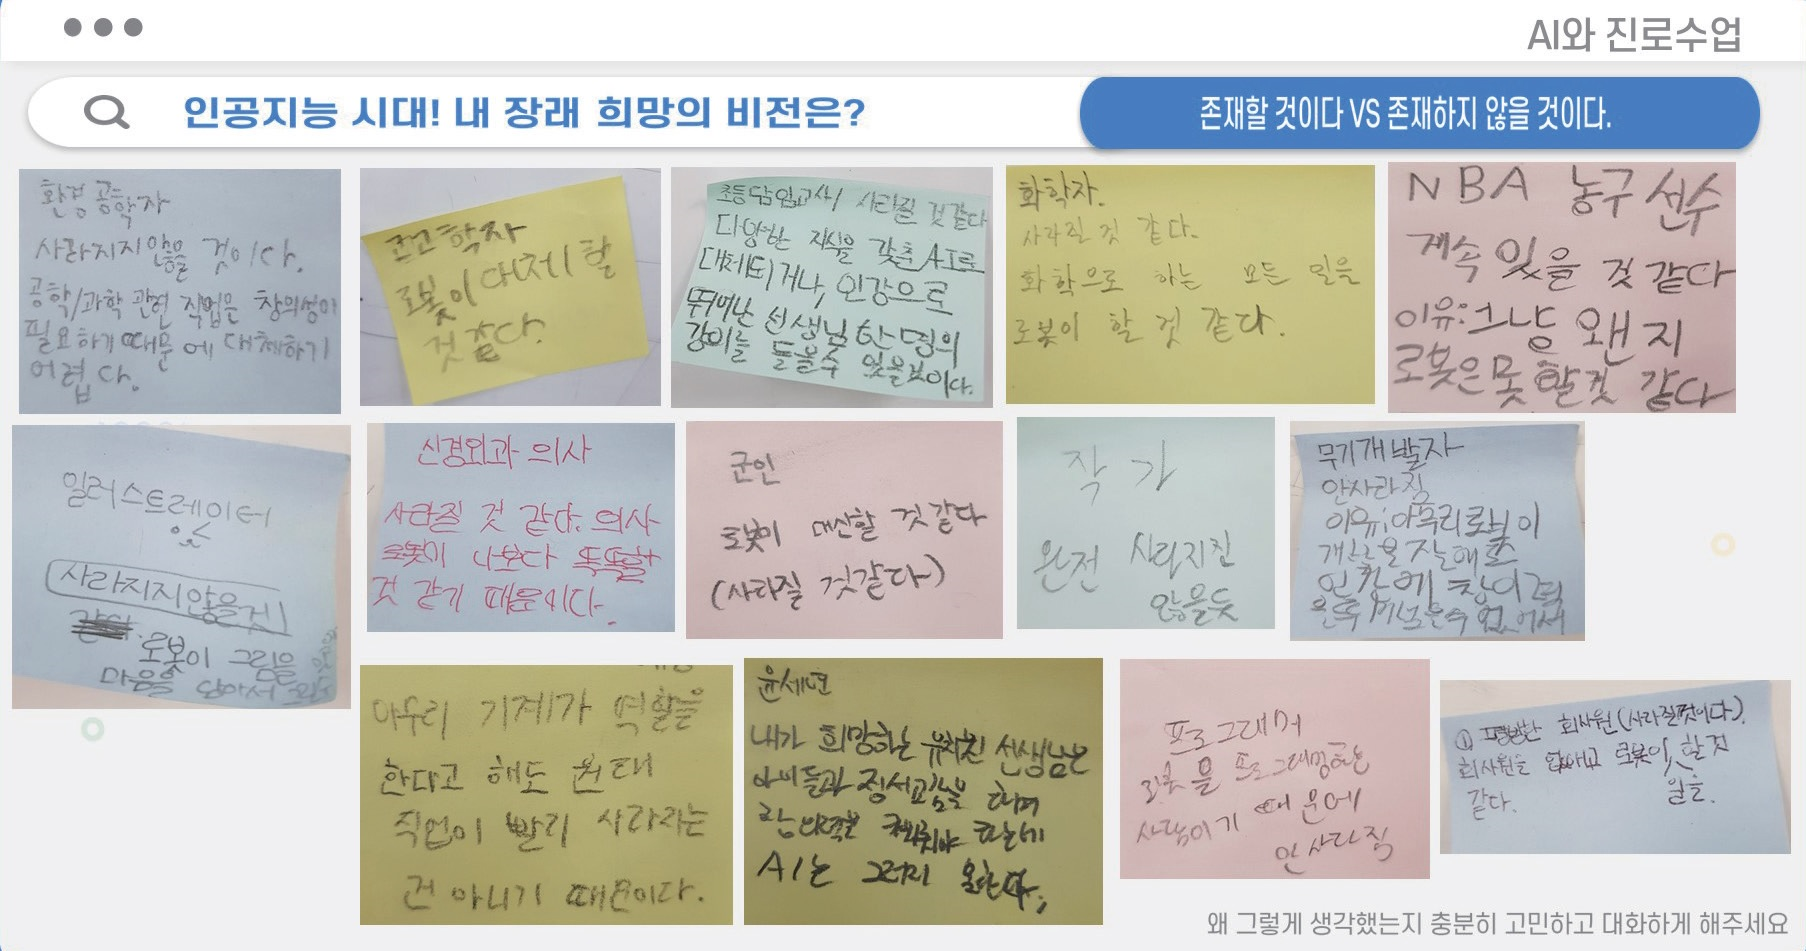 AI와 진로수업
인공지능 시대! 내 장래 희망의 비전은?
존재할 것이다 VS 존재하지 않을 것이다.
환경 공학자
사라지지 않을 것이다.
공학/과학 관련 직업은 창의성이
필요하기 때문에 대체하기
어렵다.
로봇이 대체할
것 같다.
초등담임교사/ 사라질 것 같다
다양한 지식을 갖춘 AI로
대체되거나, 인강으로
뛰어난 선생님 한 명의
강의를 들을 수 있을 것이다.
화학자.
사라질 것 같다.
화학으로 하는 모든 일을
로봇이 할 것 같다.
NBA 농구 선수
계속 있을 것 같다
이유: 그냥 왠지
로봇은 못 할 것 같다
일러스트레이터
사라지지 않을 것
로봇이 그림을
마음을 담아서
신경외과 의사
사라질 것 같다. 의사
로봇이 나보다 똑똑할
것 같기 때문이다.
군인
로봇이 대신할 것 같다
(사라질 것 같다)
작가
완전 사라지진
않을듯
무기개발자
안사라짐
이유: 아무리 로봇이
개발을 잘해도
인간에 창의력
없어서
아무리 기계가 역할을
한다고 해도 원래
직업이 빨리 사라지는
건 아니기 때문이다.
내가 희망하는 유치원 선생님은
아이들과 정서교감을 하며
AI는 그러지 못한다.
프로그래머
로봇을 프로그래밍하는
사람이기 때문에
안 사라짐
① 평범한 회사원 (사라질것이다).
회사원을 로봇이 할것
일을.
같다.
왜 그렇게 생각했는지 충분히 고민하고 대화하게 해주세요